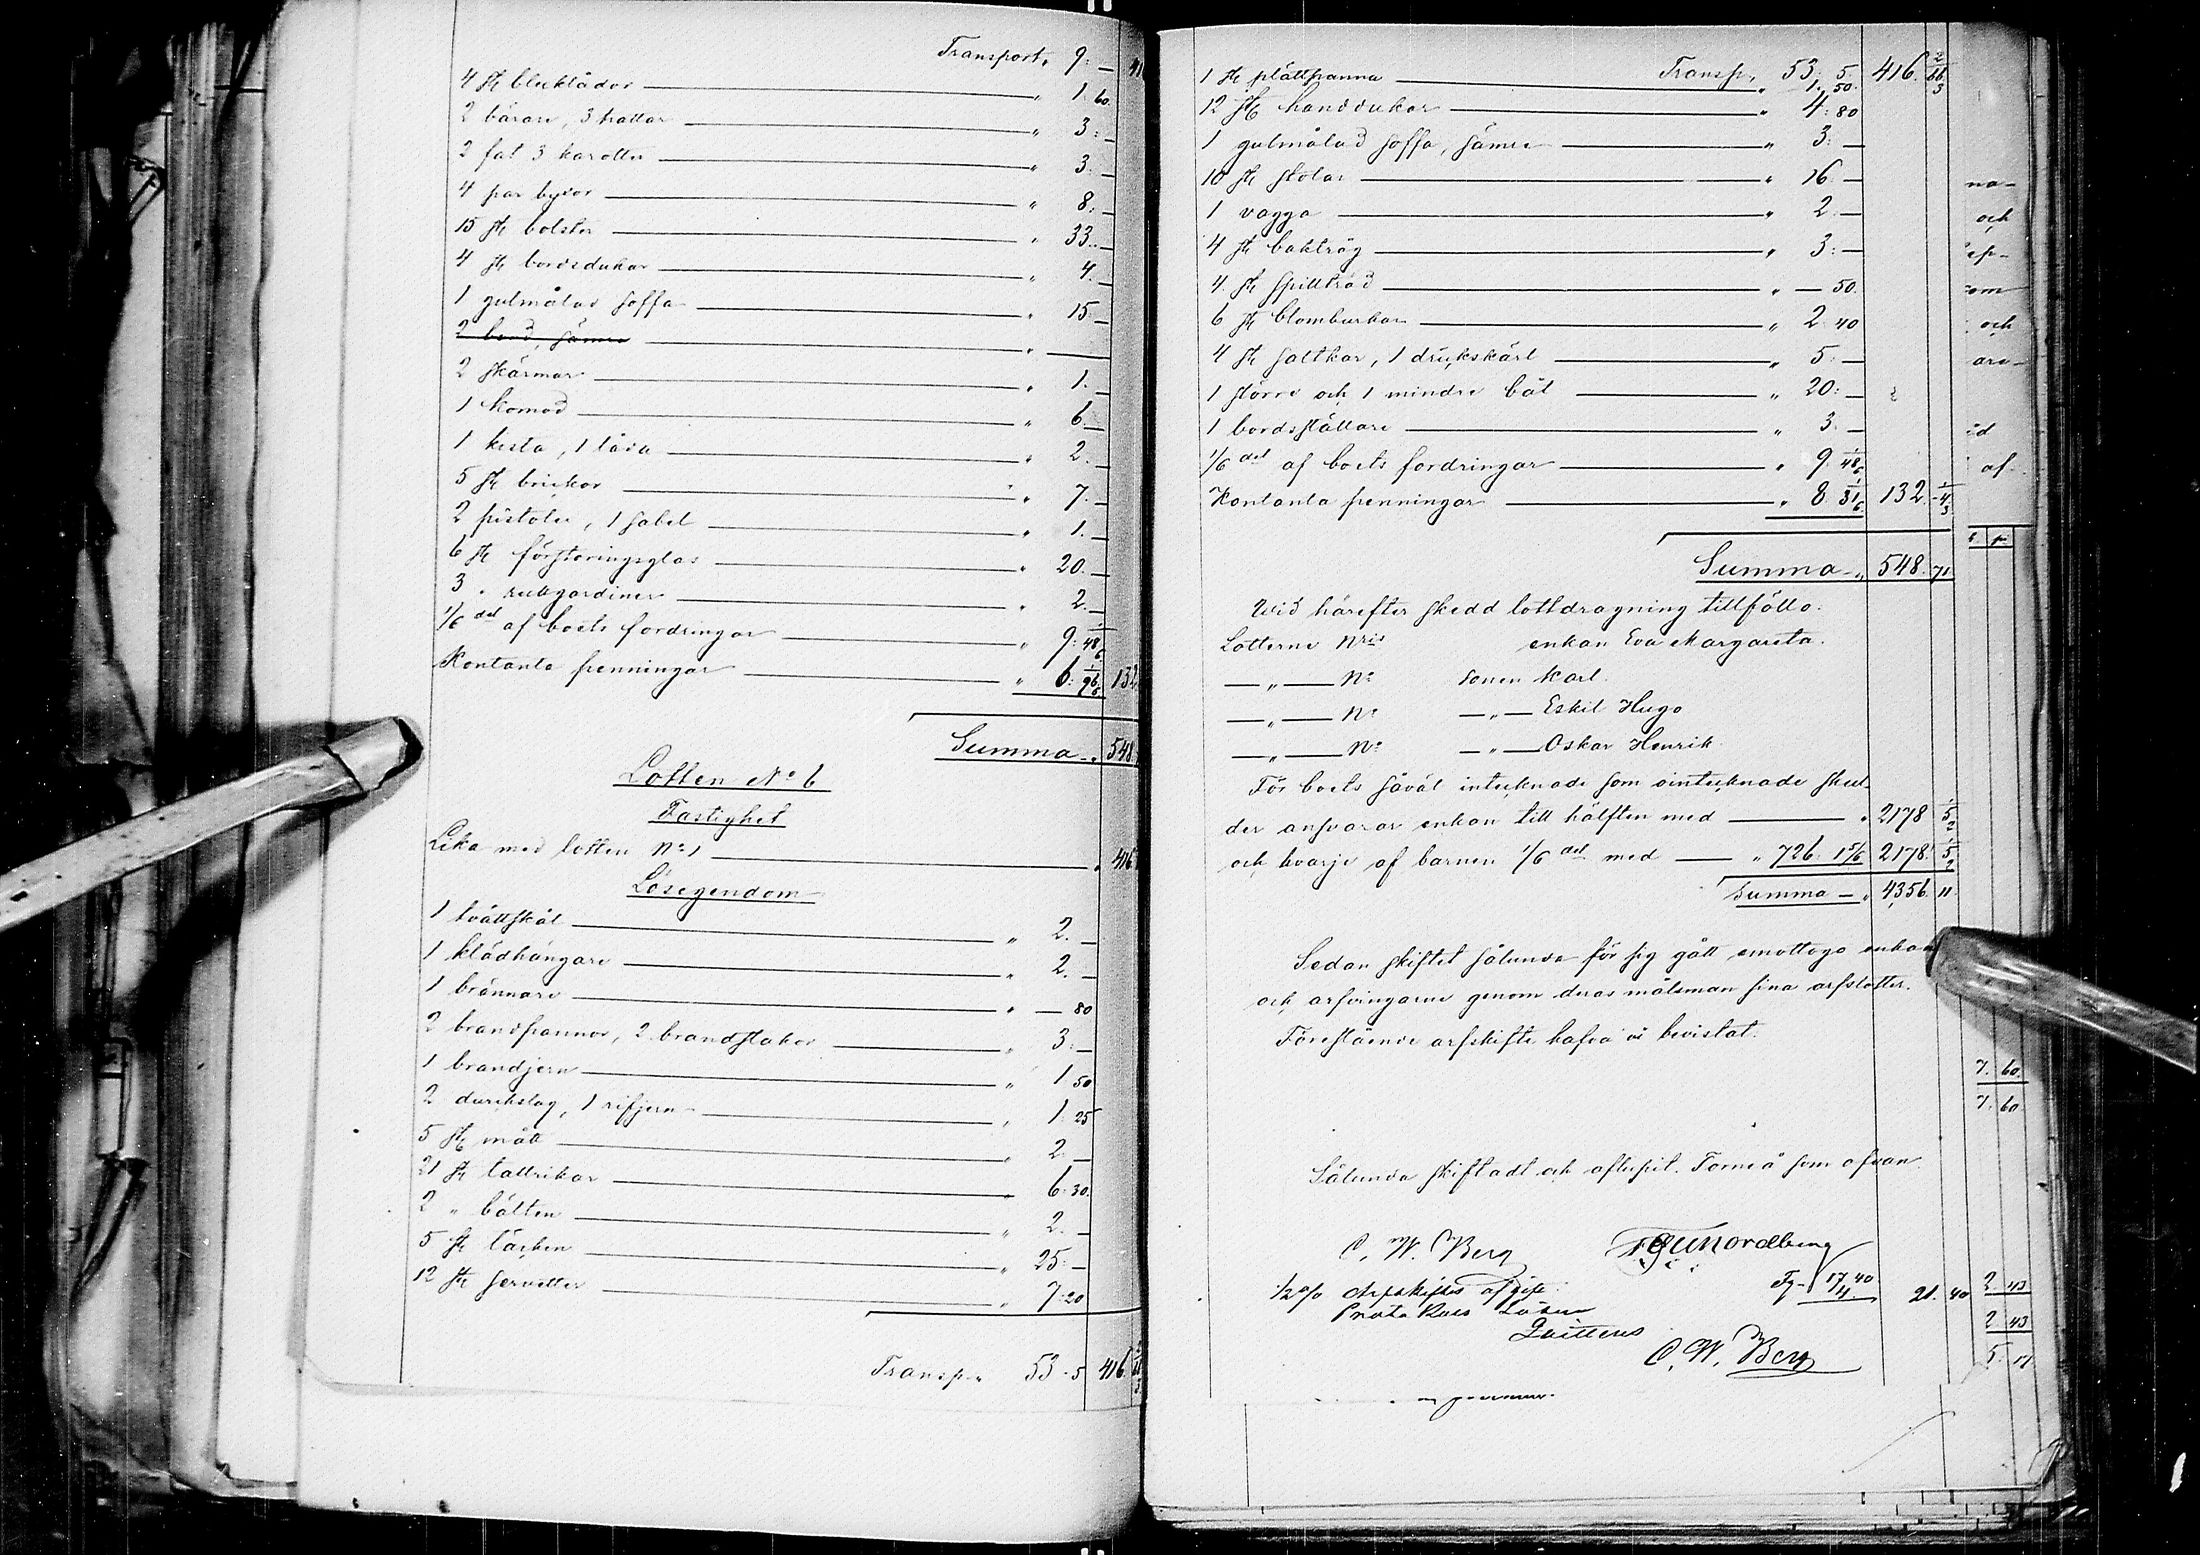 Transport " 9. —
4 st blecklådor — " 1. 60
2 bärare, 3 hattar — " 3. —
2 fat 3 karotter — " 3. —
4 par byxor — " 8. —
15 st bolster — " 33. —
4 st bordsdukar — " 4. —
1 gulmålad soffa — " 15. —
2 bord, sämre — " —
2 skärmar — " 1. —
1 komod — " 6. —
1 kista, 1 låda — " 2. —
5 st brickor — " 7. —
2 pistoler, 1 sabel — " 1. —
6 st förstoringsglas — " 20. —
3 " rullgardiner — " 2. —
1/6 del af boets fordringar — " 9. 48 1/6
Kontanta penningar — " 6. 96 1/6 132
Summa " 548
Lotten No 6
Fastighet
Lika med lotten No 1 — " 416
Lösegendom
1 tvättskål — " 2. —
1 klädhängare — " 2. —
1 brännare — " — 80
2 brandpannor, 2 brandstakar — " 3. —
1 brandjern — " 1 50
2 durchslag, 1 rifjern — " 1. 25
5 st mått — " 2. —
21 st tallrikar — " 6. 30
2 " bälten — " 2. —
5 st täcken — " 25. —
12 st servetter — " 7. 20
Transp. " 53. 5 416. 66 2/3
1 st plättpanna — Transp. " 53. 5. 416. 66 2/3
" 1. 50.
12 st handdukar — " 4. 80
1 gulmålad soffa, sämre — " 3. —
10 st stolar — " 16. —
1 vagga — " 2. —
4 st baktråg — " 3. —
4 st spilltråd — " — 50.
6 st blomburkar — " 2. 40
4 st saltkar, 1 drickskärl — " 5. —
1 större och 1 mindre båt — " 20. —
1 bordsställare — " 3. —
1/6 del af boets fordringar — " 9. 48 1/6
Kontanta penningar — " 8. 31 1/6 132. 4 1/3
Summa " 548. 71
Wid härefter skedd lottdragning tillföllo:
Lotterne Nris enkan Eva Margareta.
— " — No sonen Karl.
— " — No — " — Eskil Hugo
— " — No — " — Oskar Henrik
För boets såväl intecknade som ointecknade skul-
der ansvarar enkan till hälften med — " 2178 5 1/2
och hvarje af barnen 1/6 del med — " 726. 1 5/6 2178. 5 1/2
Summa — " 4356. 11
Sedan skiftet sålunda för sig gått emottogo enkan
och arfvingarne genom deras målsman sina arfslotter.
Förestående arfskifte hafva vi bevistat.
Sålunda skiftadt och aflupit. Torneå som ofvan.
C. W. Berg Nordberg
1/2 % Arfskiftes afgift Fg 17 40
Protokolls Lösen 4. 21. 40
Quitteras
C. W. Berg
na-
och
ep-
om
och
are-
id
af
7. 60.
7. 60.
2 43
2 43
5. 17